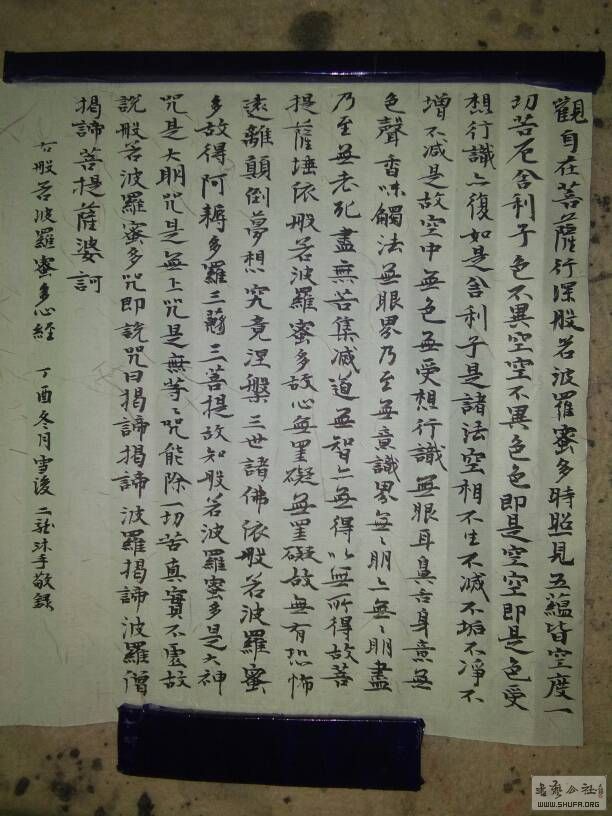 觀自在菩薩行深般若波羅蜜多時照見五蘊皆空度一
切苦厄舍利子色不異空空不異色色即是空空即是色受
想行識亦復如是舍利子是諸法空相不生不滅不垢不淨不
增不減是故空中無色無受想行識無眼耳鼻舌身意無
色聲香味觸法無眼界乃至無意識界無〻明亦無〻明盡
乃至無老死盡無苦集滅道無智亦無得以無所得故菩
提薩埵依般若波羅蜜多故心無罣礙無罣礙故無有恐怖
遠離顛倒夢想究竟涅槃三世諸佛依般若波羅蜜
多故得阿耨多羅三藐三菩提故知般若波羅蜜多是大神
咒是大明咒是無上咒是無等〻咒能除一切苦真實不虛故
說般若波羅蜜多咒即說咒曰揭諦揭諦波羅揭諦波羅僧
揭諦菩提薩婆訶
右般若波羅蜜多心經 丁酉冬月雪後二龍沐手敬錄
書藝公社
WWW.SHUFA.ORG